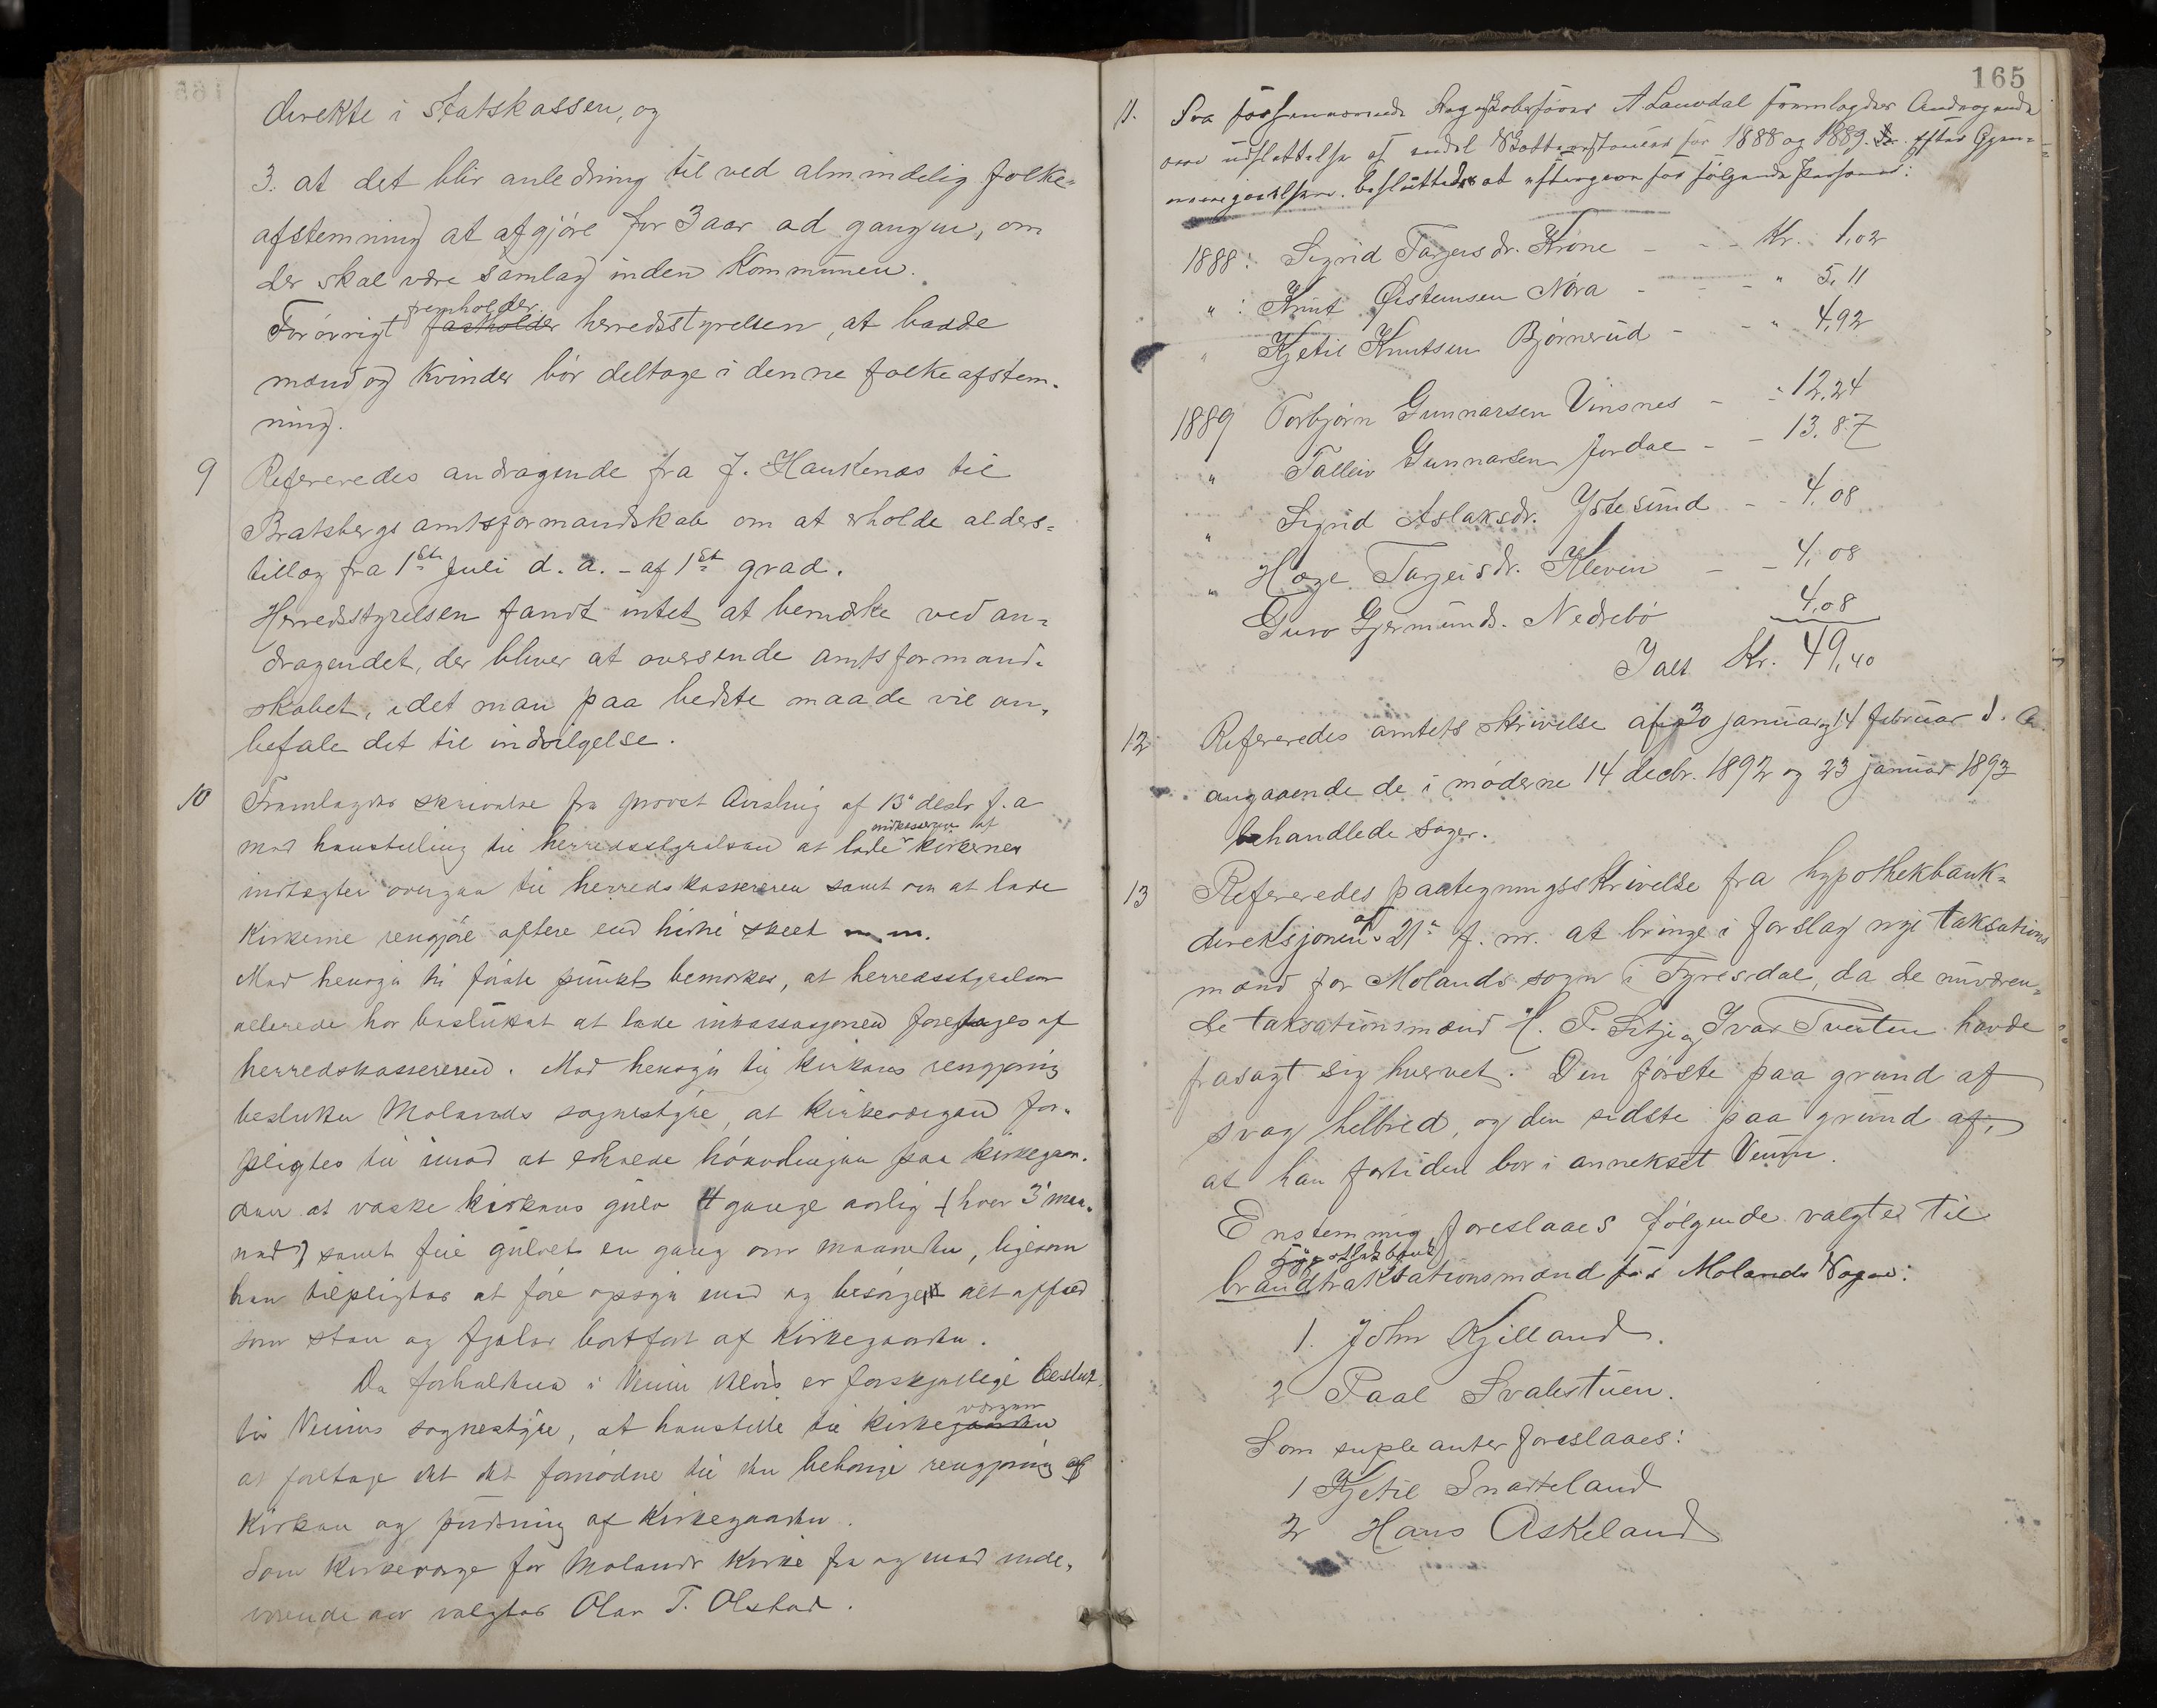 direkte i Statskassen, og
3. at det blir anledning til ved almindelig folke=
afstemning at afgjøre for 3 aar ad gangen, om
der skal være samlag inden Kommunen.
fremholder
Forøvrigt fastholder herredsstyrelsen, at baade
mænd og kvinder bør deltage i denne folkeafstem-
ning.
9 Refereredes andragende fra J. Haukenæs til
Bratsbergs amtsformandskab om at erholde alders=
tillæg fra 1ste Juli d. a. - af 1ste grad.
Herredsstyrelsen fandt intet at bemærke ved an=
dragendet, der bliver at oversende amtsformand-
skabet, idet man paa bedste maade vil an-
befale det til indvilgelse.
10 Fremlagdes skrivelse fra provst af 13de decbr f. a
indkassering af
med henstilling til herredsstyrelsen at lade kirkernes
indtægter overgaa til herredskassereren samt om at lade
Kirkerne rengjøre oftere end hidtil skeet m. m.
Med hensyn til første punkt bemærkes, at herredsstyrelsen
allerede har besluttet at lade inkassasjonen foretages af
herredskassereren. Med hensyn til kirkens rengjøring
beslutter Molands sognestyre, at kirkeværgen for-
pligtes til imod at erholde høavlingen paa kirkegaar-
den at vaske kirkens gulv 4 gange aarlig (hver 3' maa-
ned) samt feie gulvet en gang om maaneden, ligesom
han tilpligtes at føre opsyn med og besørget alt affald
som sten og fjæler bortført af Kirkegaarden.
Da forholdene i Veum er forskjellige beslut-
værgen
ter Veums sognestyre, at henstille til kirkegaarden
at foretage det fornødne til den behørige rengjøring af
Kirken og pudsning af Kirkegaarden.
Som Kirkeværge for Molands Kirke fra og med inde-
værende aar valgtes Olav T. Olstad.
165
11. Fra forhenværende Regnskabsfører A. Lauvdal fremlagdes Andragende
om udslettelse af endel Skatterestancer for 1888 og 1889. Efter Gjen=
nemgaaelsen besluttedes at eftergive for følgende Personer:
1888: Sigrid Targeisdr. Krone - - - Kr. 1,02
" : Knut Øistensen Nóra - - - " 5,11
" Kjetil Knutsen Bjørnerud - - " 4,92
1889 Torbjørn Gunnarsen Vinsnes - " 12,24
" Talleiv Gunnarsen Jordal - - 13.87
" Sigrid Aslaksdr. Ystesund - - 4,08
" Hæge Targeisdr. Kleven - - 4,08
Guro Gjermunds. Nedrebø 4,08
Ialt Kr. 49,40
12 Refereredes amtets skrivelse af 30 januar og 14 februar d. a.
angaaende de i møderne 14 decbr. 1892 og 23 januar 1893
behandlede sager.
13 Refereredes paategningsskrivelse fra hypothekbank-
direksjonen af 21de f. m. at bringe i forslag nye taksations
mænd for Molands sogn i Fyresdal, da de nuværen=
de taksationsmænd H. P. Sitje og Ivar Tveiten havde
frasagt sig hvervet. Den første paa grund af
svag helbred, og den sidste paa grund af,
at han fortiden bor i annekset Veum.
Enstemmig foreslaaes følgende valgte til
hypothekbank
brandtaksationsmænd for Molands Sogn:
1. John Kjilland.
2 Paal Svalestuen.
Som supleanter foreslaaes:
1 Kjetil Snarteland
2 Hans Askeland